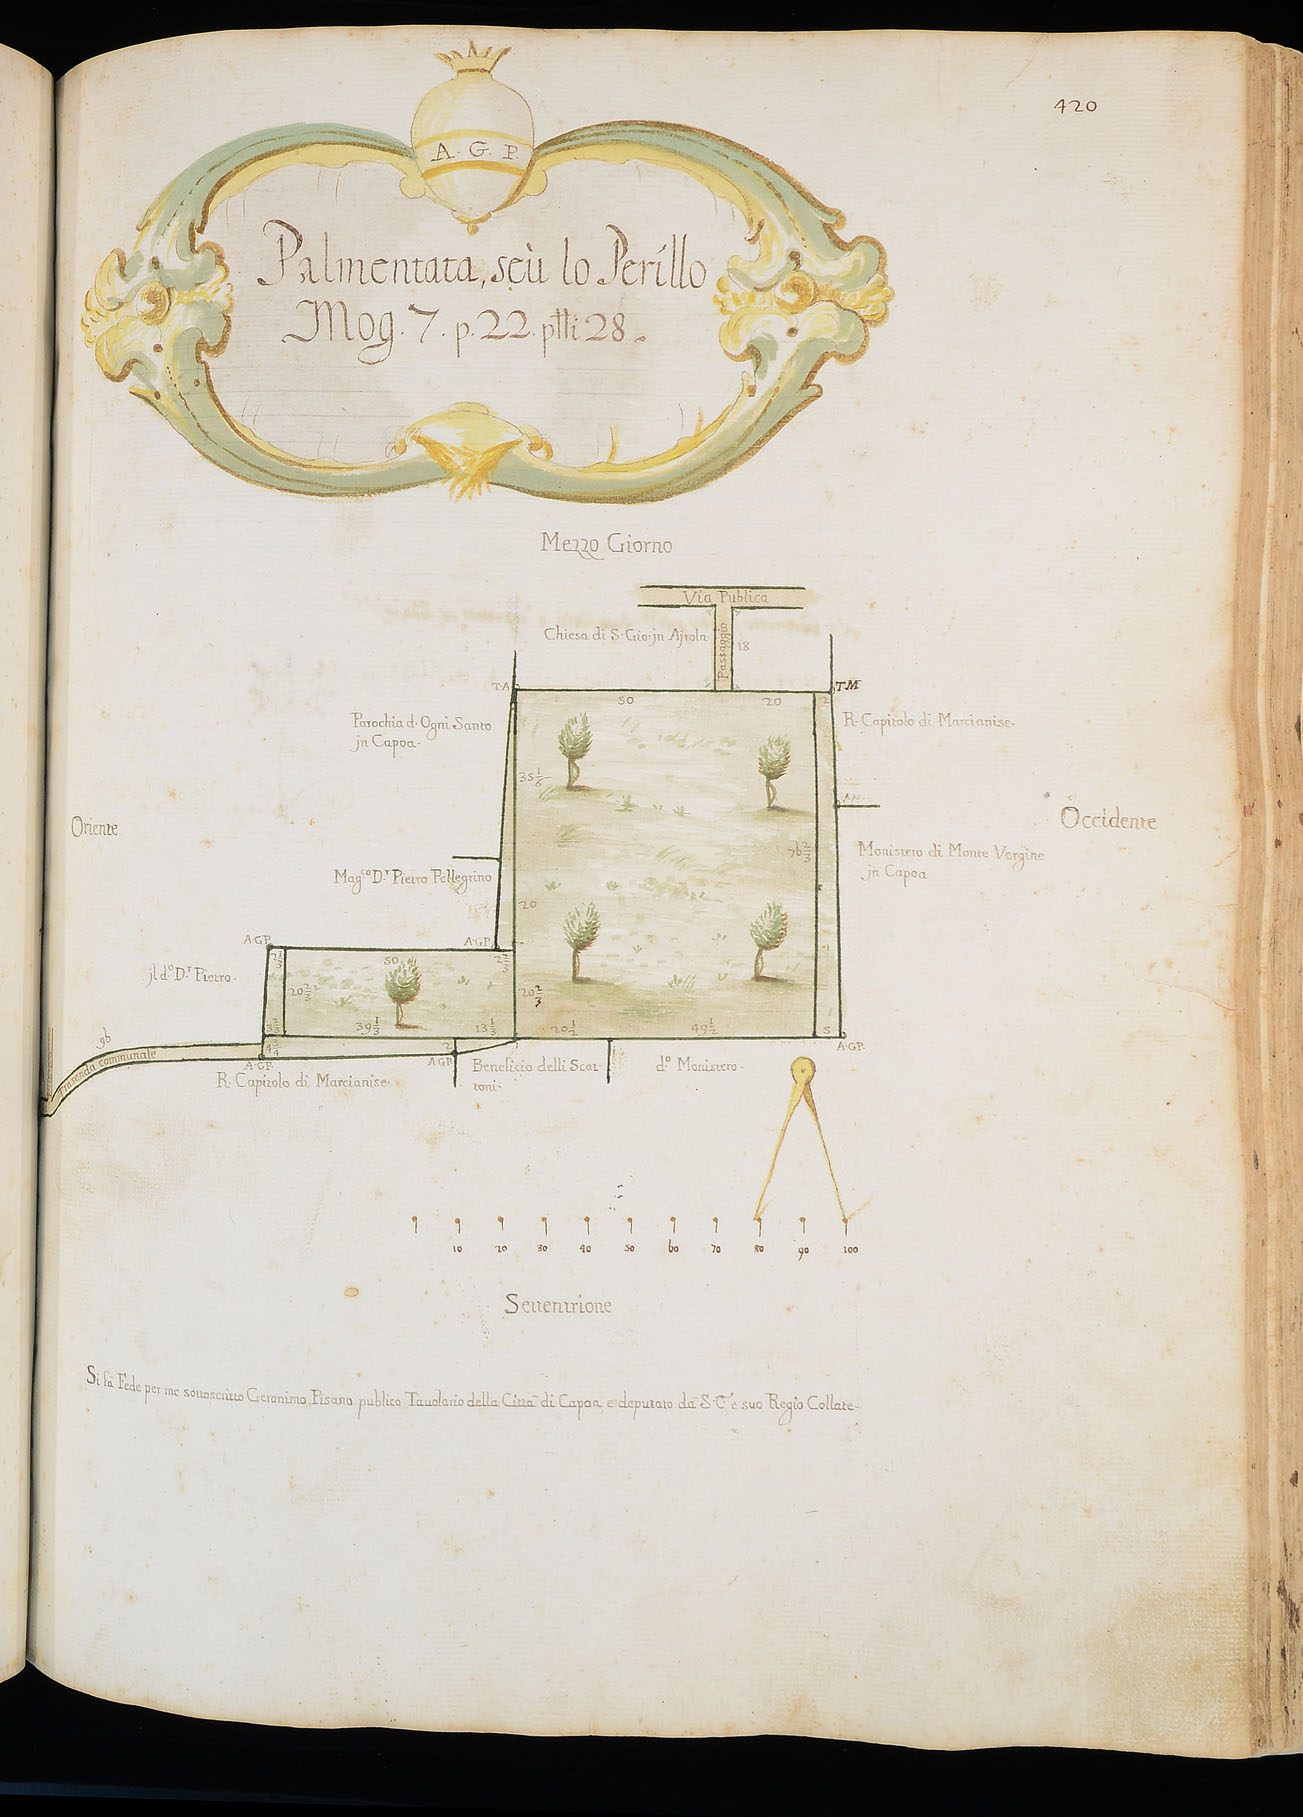 420
A. G. P.
Palmentata, seù lo Perillo
Mog. 7. p. 22. ptti 28.
Mezzo Giorno
Via Publica
Chiesa di S. Gio: jn Ajrola
Passaggio
18
T·A
50
20
2
T·M
Parochia d. Ogni Santo
jn Capoa.
R. Capitolo di Marcianise.
35 1/6
Oriente
Occidente
Mag.co D.r Pietro Pellegrino
76 2/3
Monistero di Monte Vergine
jn Capoa
20
A·G·P.
A·G·P.
jl d.o D.r Pietro.
2 1/3
50
2 2/3
20 2/3
20 2/3
3 2/3
39 1/3
13 1/3
20 1/2
49 1/2
5
A·G·P.
96
Trasenda communale
4 3/4
2
A·G·P.
A·G·P.
R. Capitolo di Marcianise.
Beneficio delli Scar
toni.
d.o Monistero.
10 20 30 40 50 60 70 80 90 100
Settentrione
Si fà Fede per me sottoscritto Geronimo Pisano publico Tauolario della Città di Capoa, e deputato dà S. C. e suo Regio Collate-